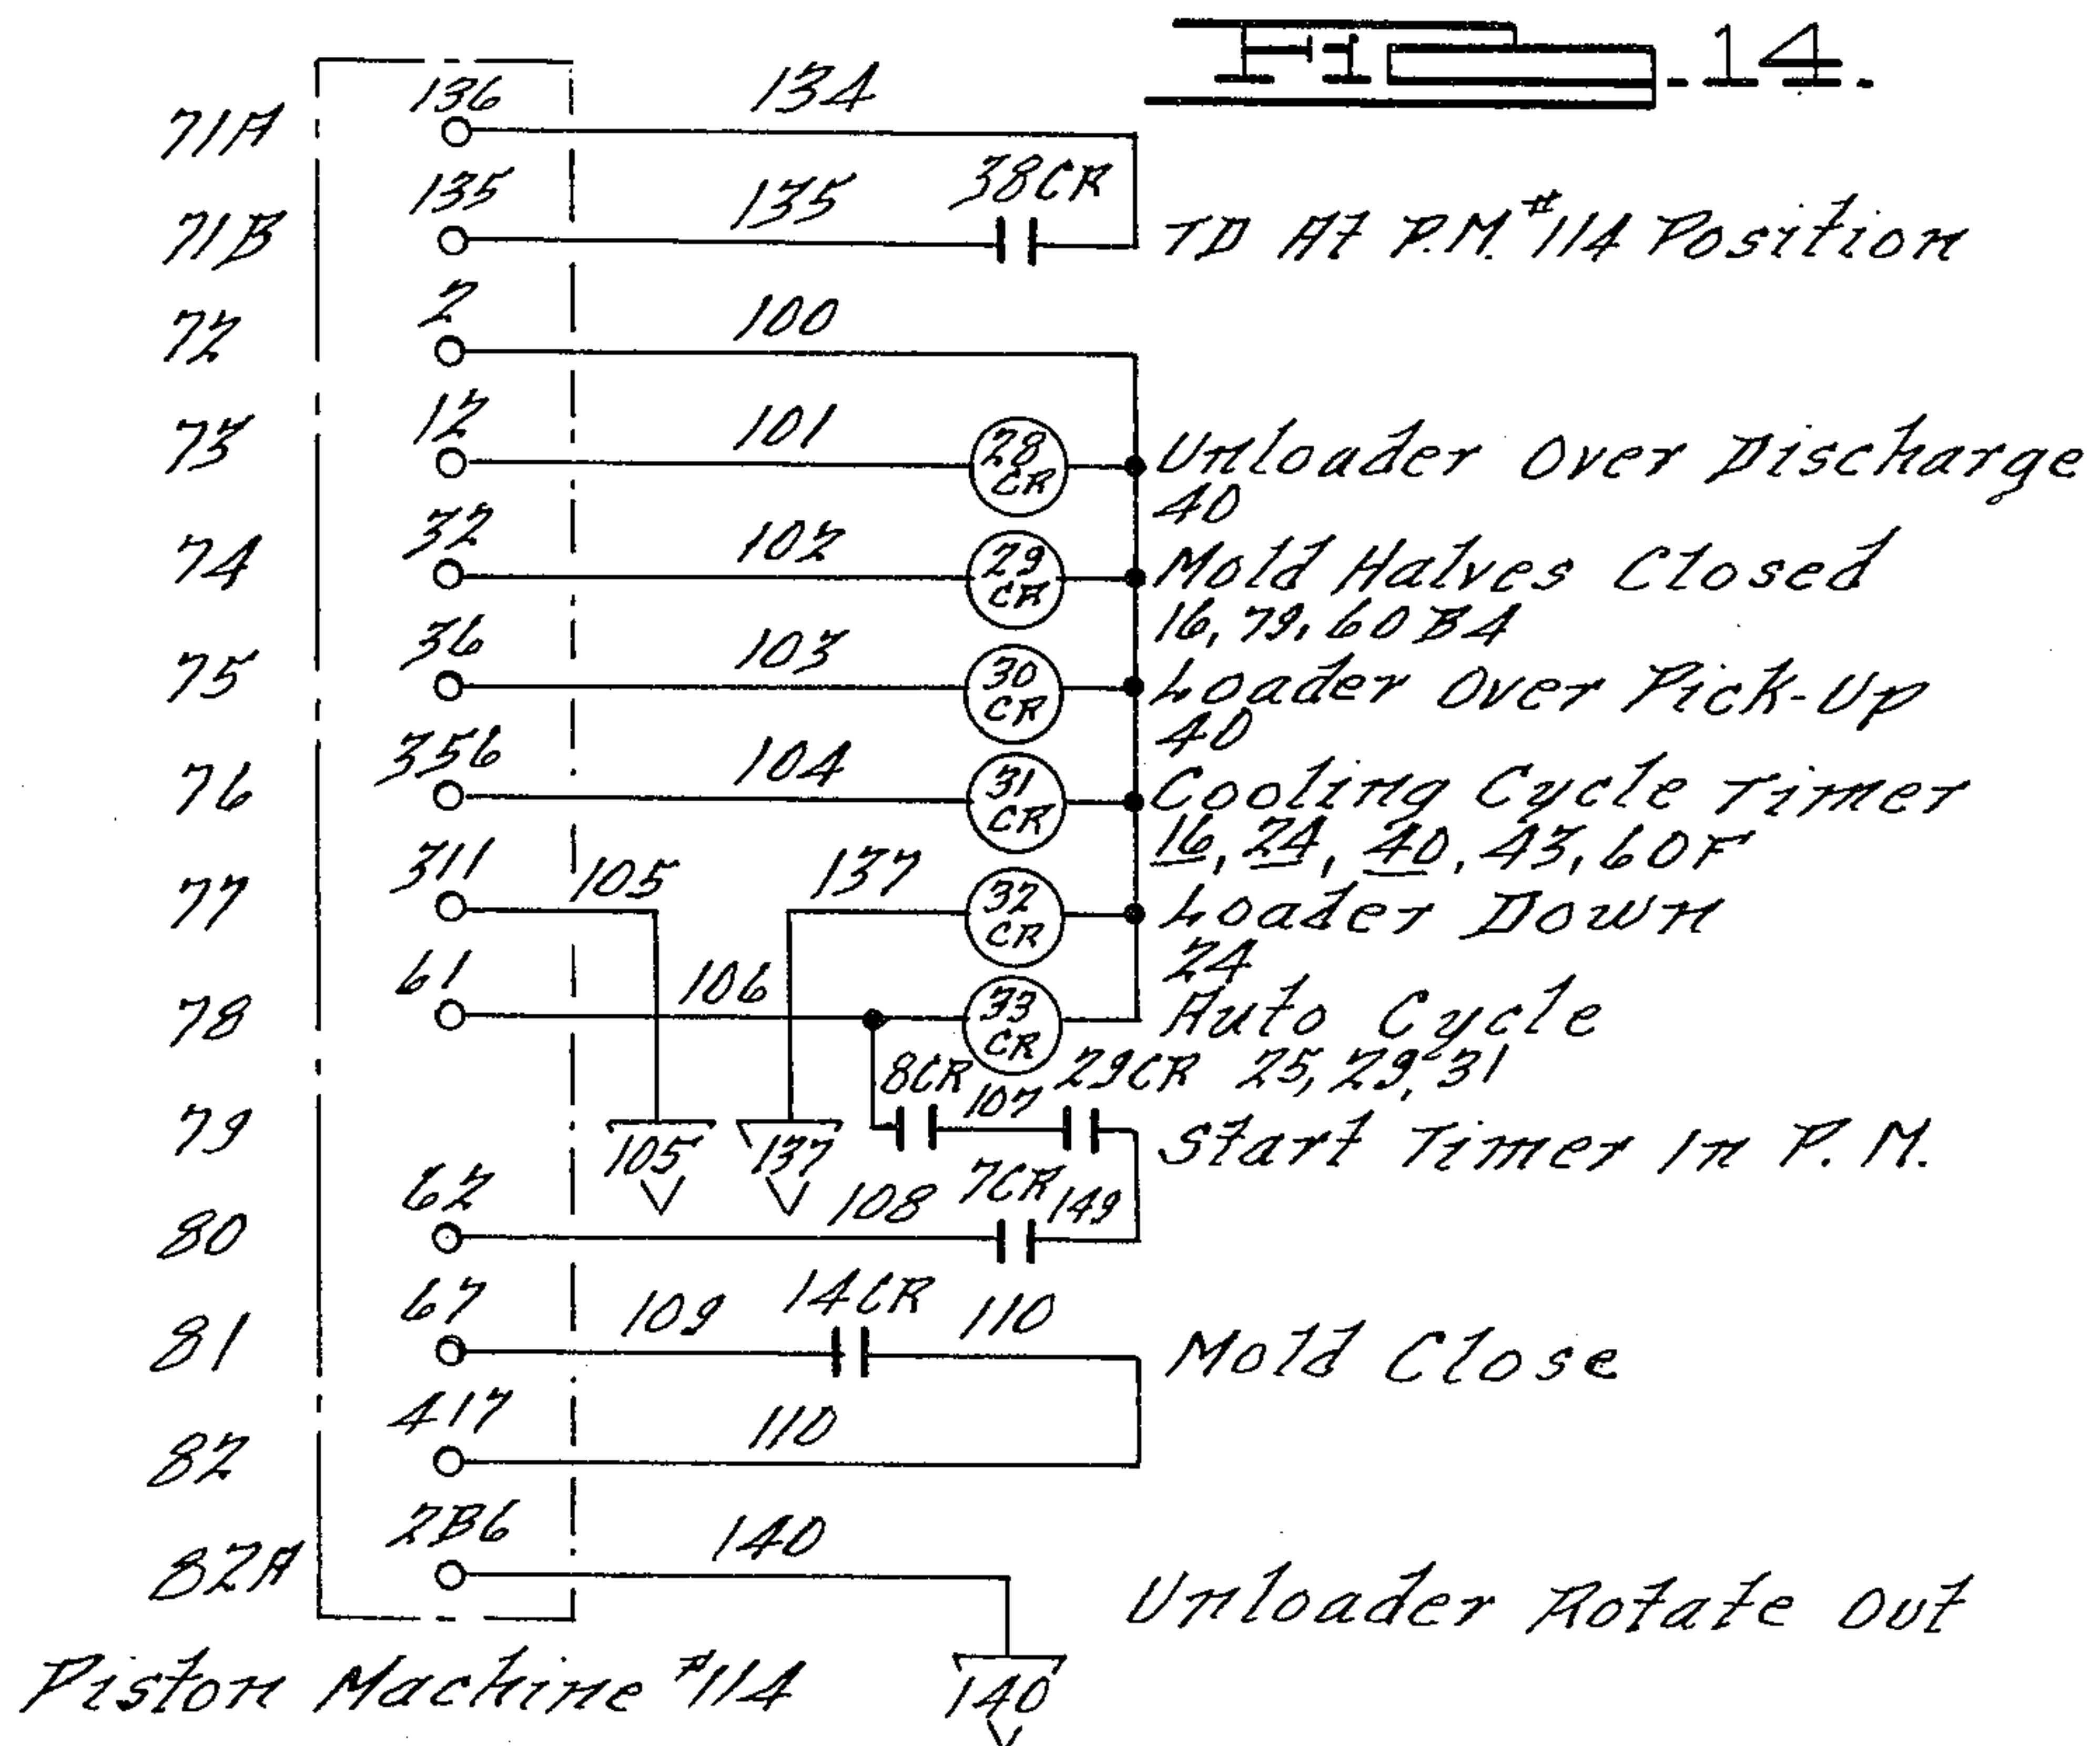 Fig. 14.
136 134
71A
38CR
135 135
71B TD At P.M. #114 Position
2 100
72
12 101
73 28 CR Unloader Over Discharge
40
32 102
74 29 CR Mold Halves Closed
16, 79, 60B4
36 103
75 30 CR Loader Over Pick-Up
40
356 104
76 31 CR Cooling Cycle Timer
16, 24, 40, 43, 60F
311 105 137
77 32 CR Loader Down
24
61 106
78 33 CR Auto Cycle
8CR 107 29CR 25, 29, 31
79 105 137 Start Timer In P.M.
62 108 7CR 149
80
67 109 14CR 110
81 Mold Close
417 110
82
2B6 140
82A Unloader Rotate Out
Piston Machine #114 140